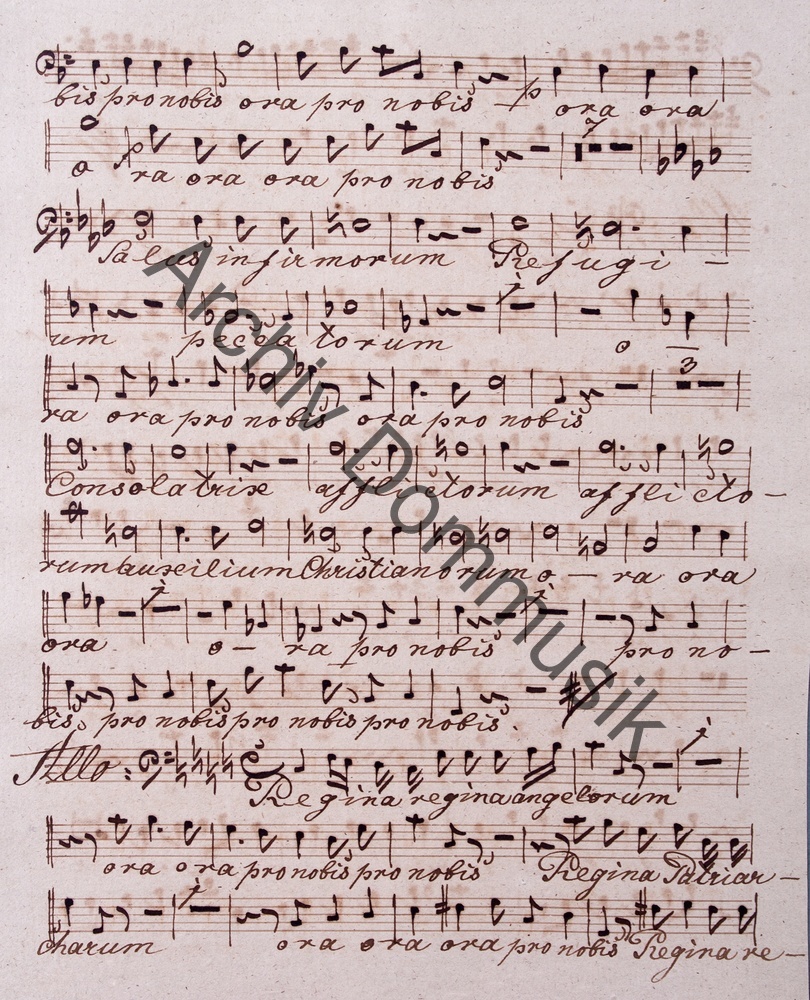 bis pro nobis ora pro nobis — p ora ora
o p ra ora ora pro nobis 7
Salus infirmorum Refugi —
um pecca torum 1 o
3
ra ora pro nobis ora pro nobis
Consolatrix afflictorum afflicto —
rum auxilium Christianorum o — ra ora
1 1
ora o — ra pro nobis pro no —
bis, pro nobis pro nobis pro nobis.
Allo: C 1
Regina regina angelorum
ora ora pro nobis pro nobis Regina Patriar —
1
charum ora ora ora pro nobis Regina re —
Archiv Dommusik